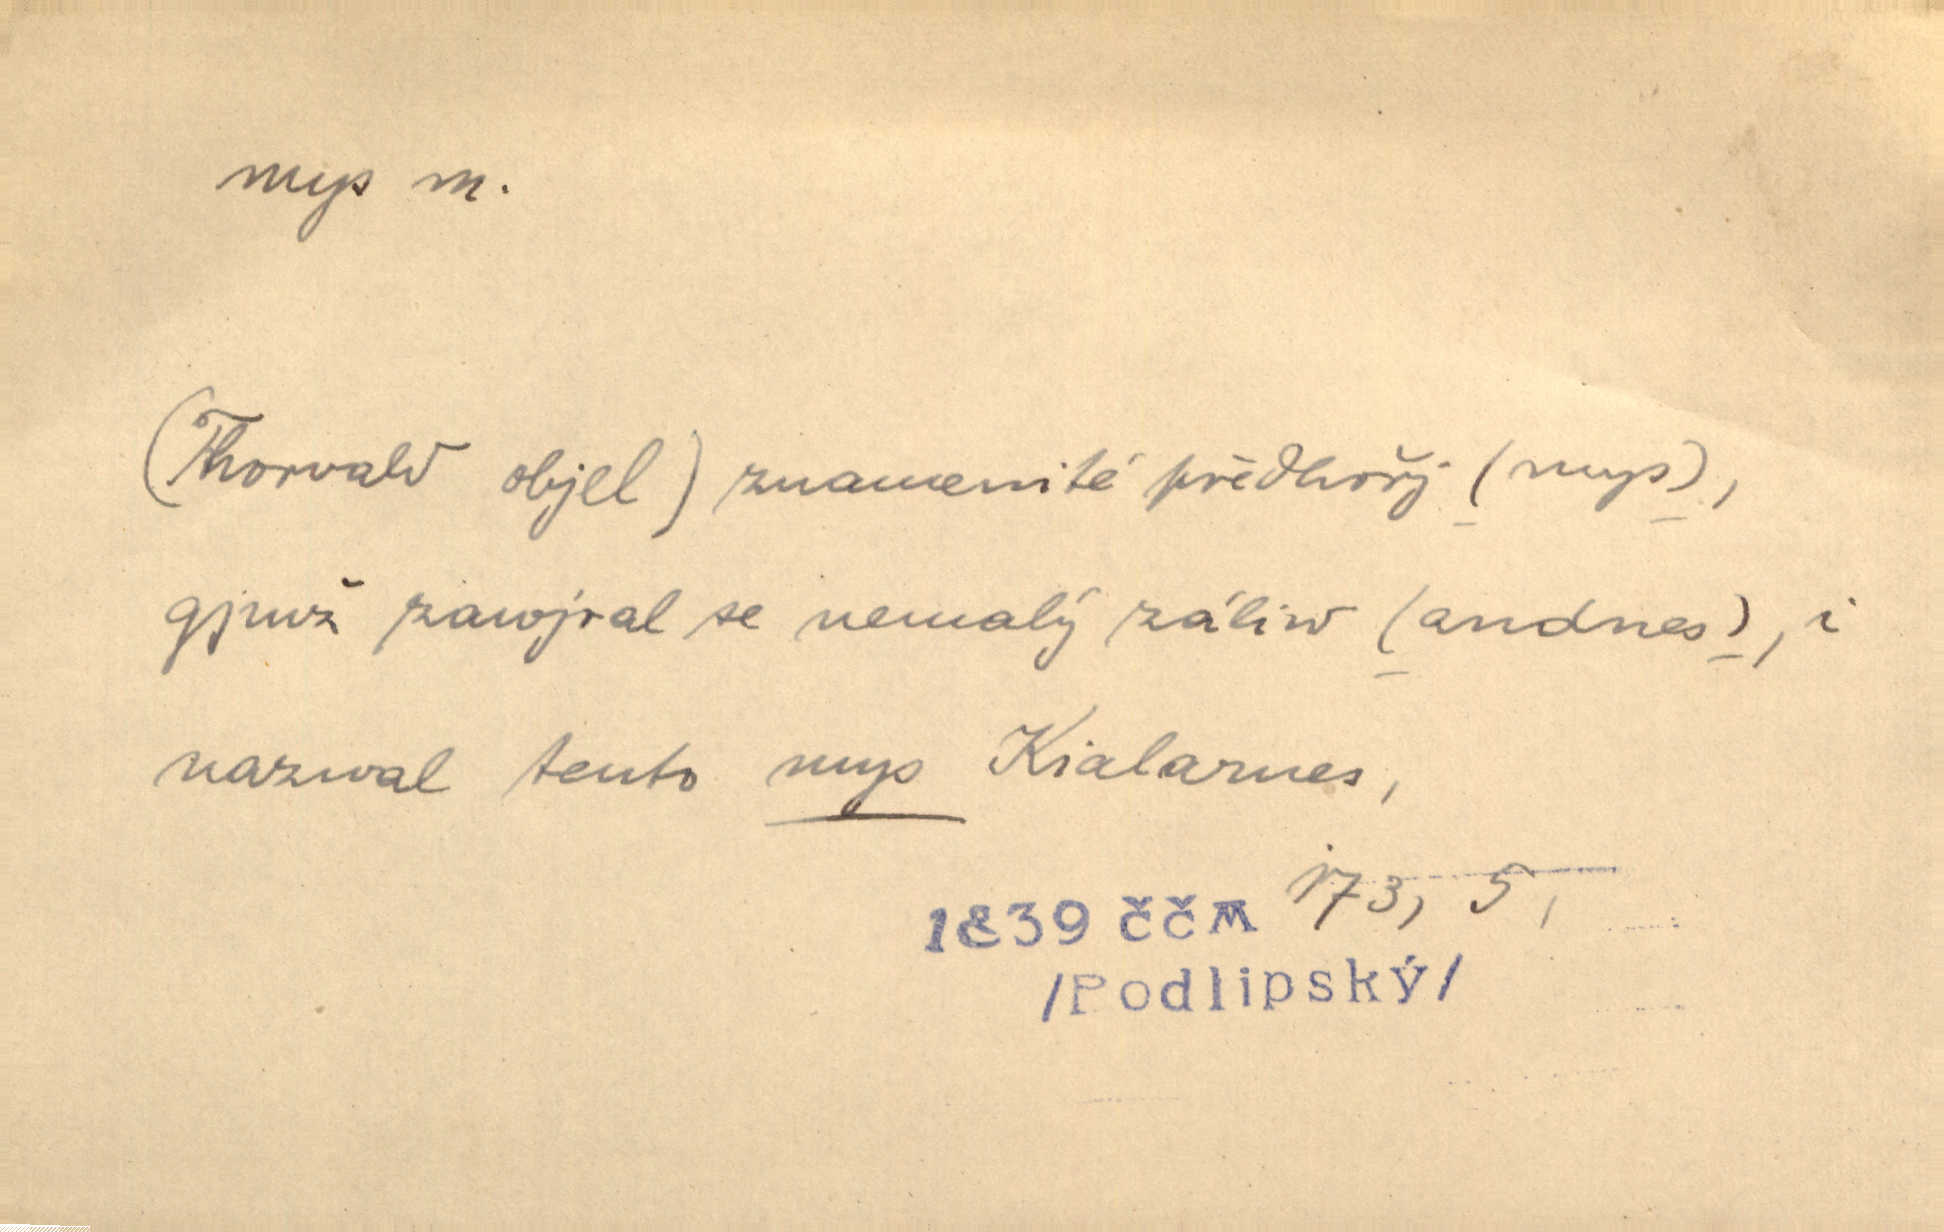 mys m.
(Thorvald objel) znamenité předhořj (mys),
gjmž zawjral se nemalý záliw (andnes), i
nazwal tento mys Kialarnes,
173, 5,
1839 ČČM
/Podlipský/